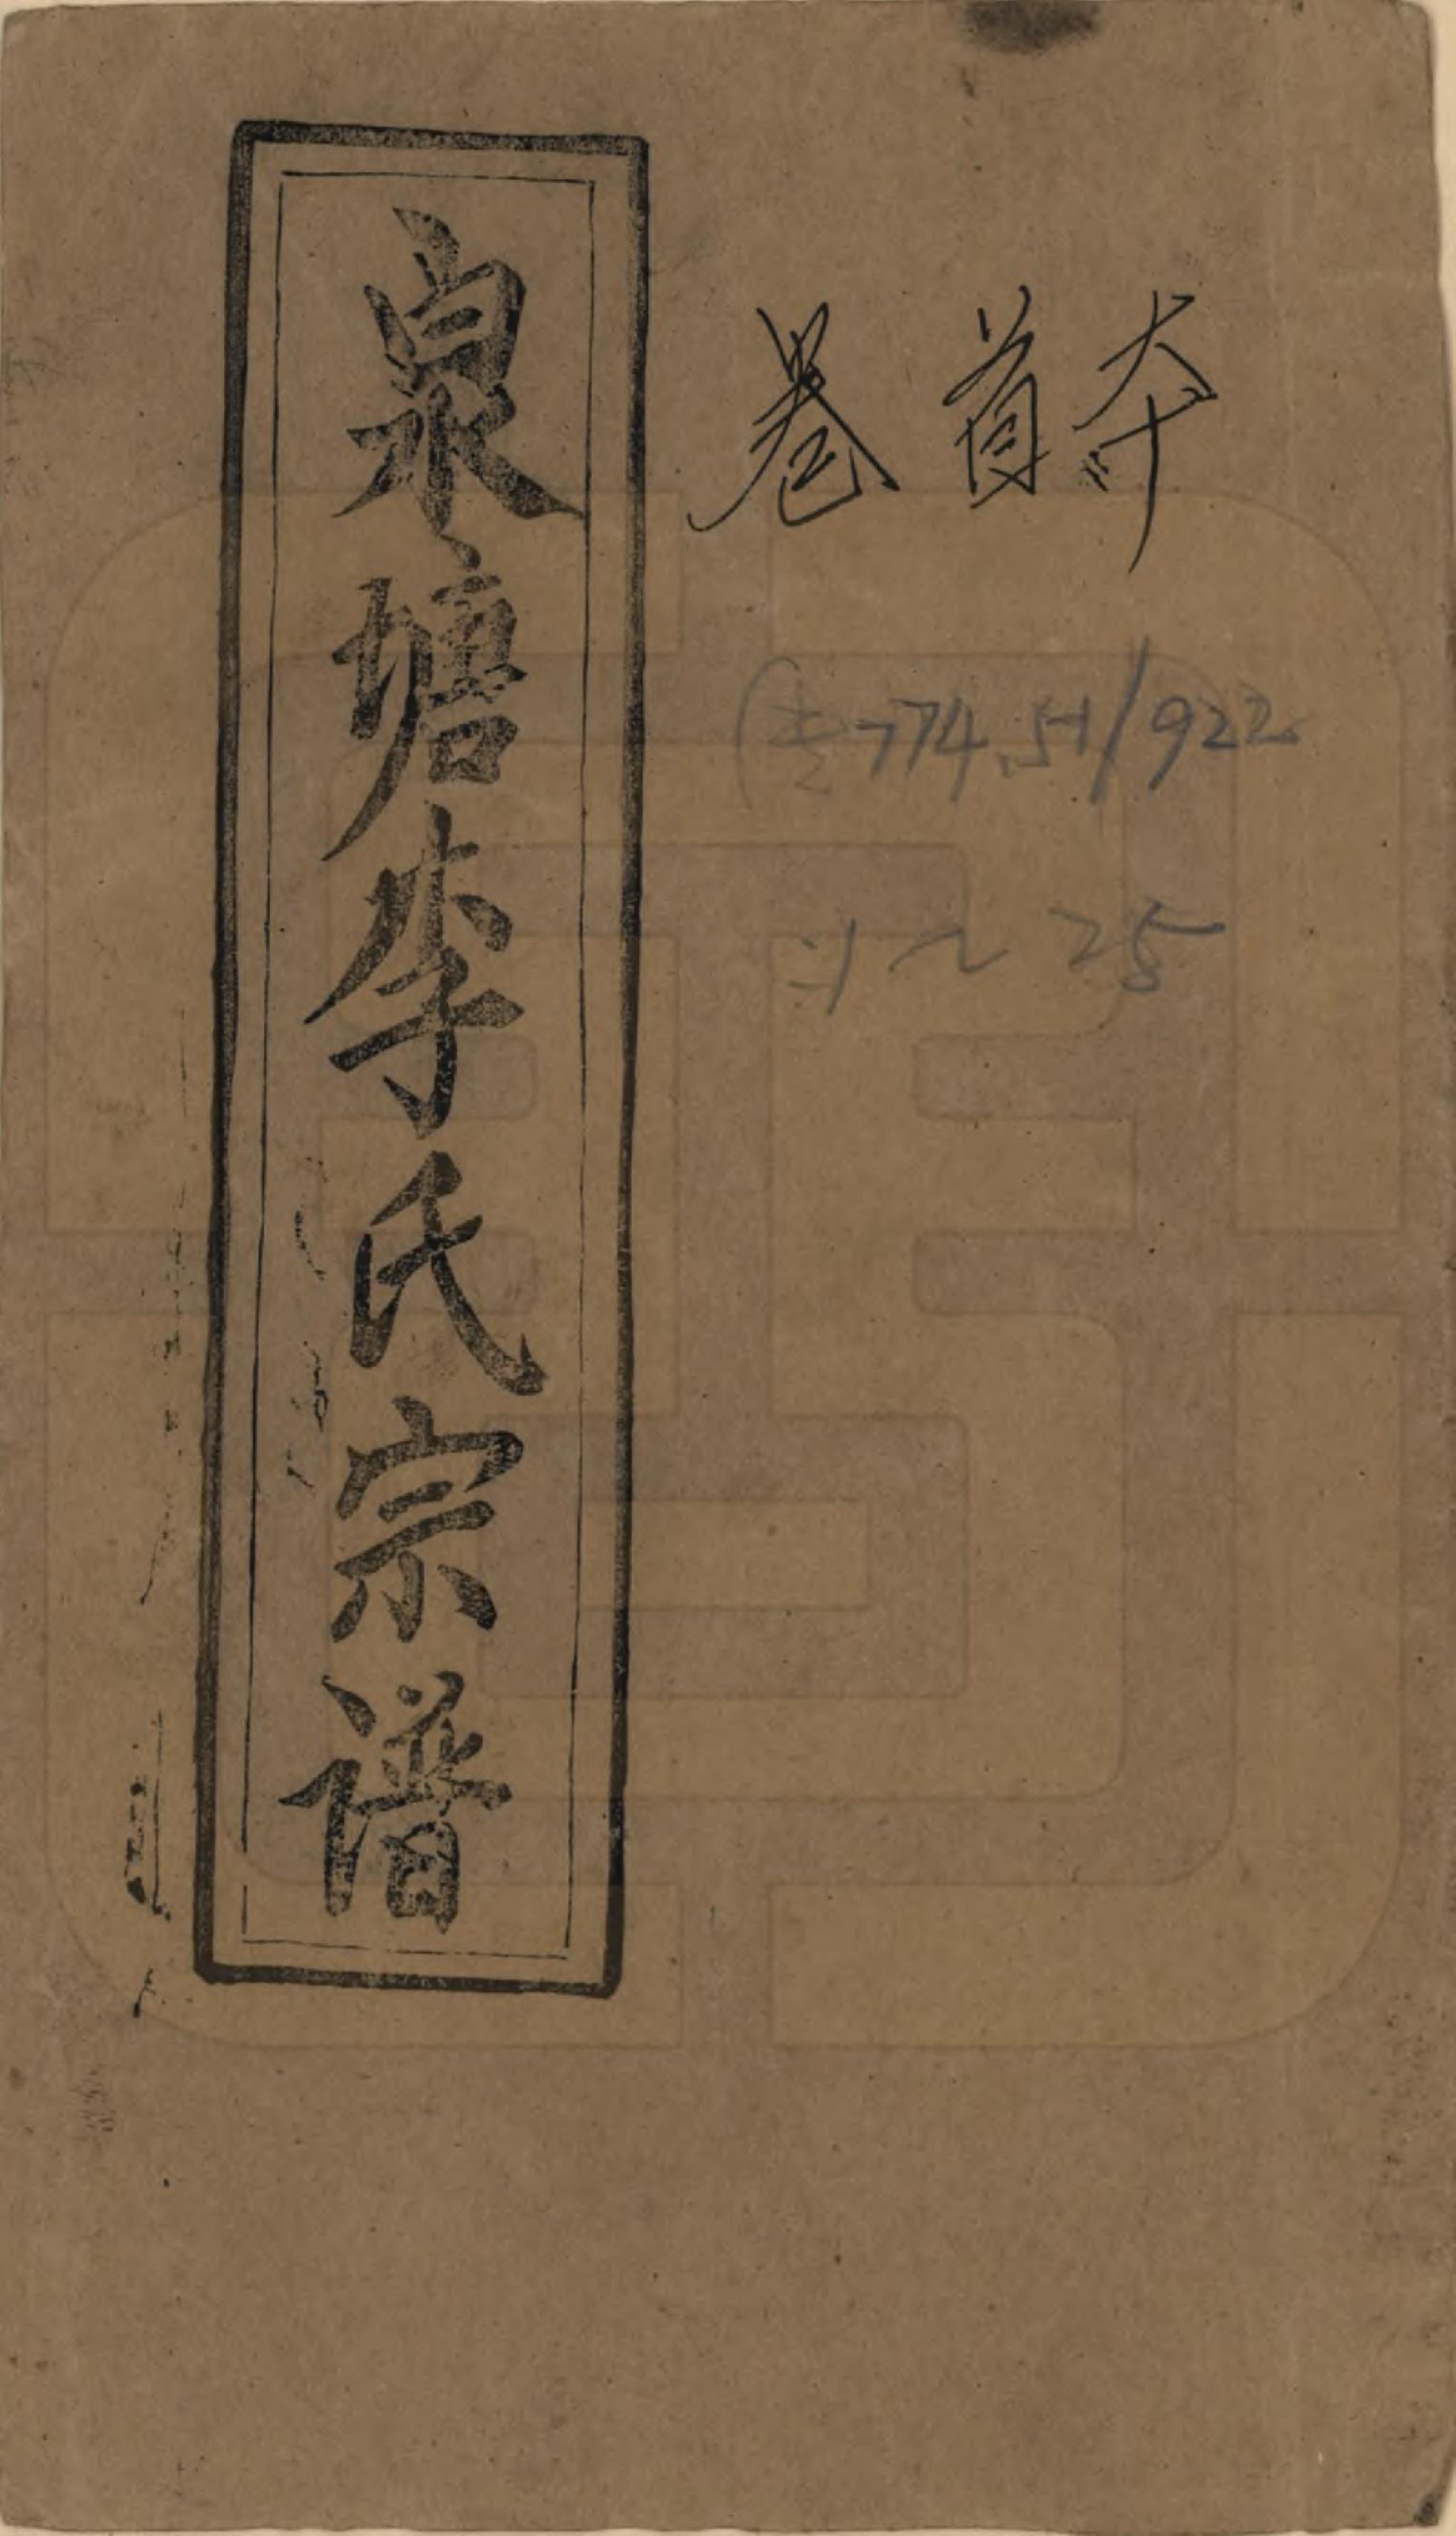 泉塘李氏宗譜
卷首
774.51/922
:1~25